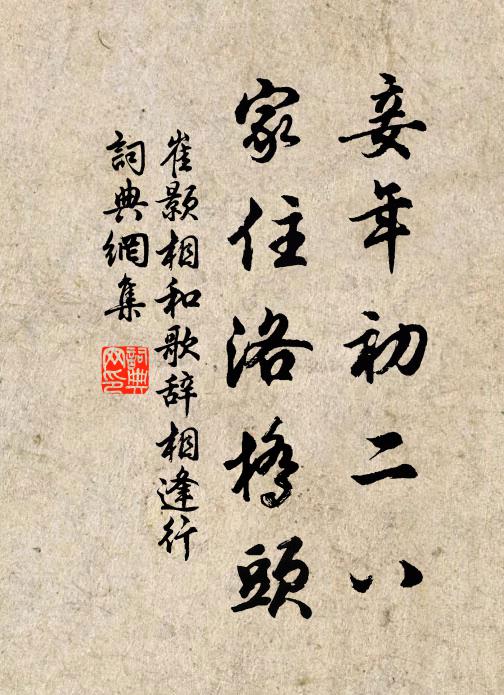 妾年初二八
家住洛橋頭
崔颢相和歌辞相逢行
詞典網集
詞典
网印